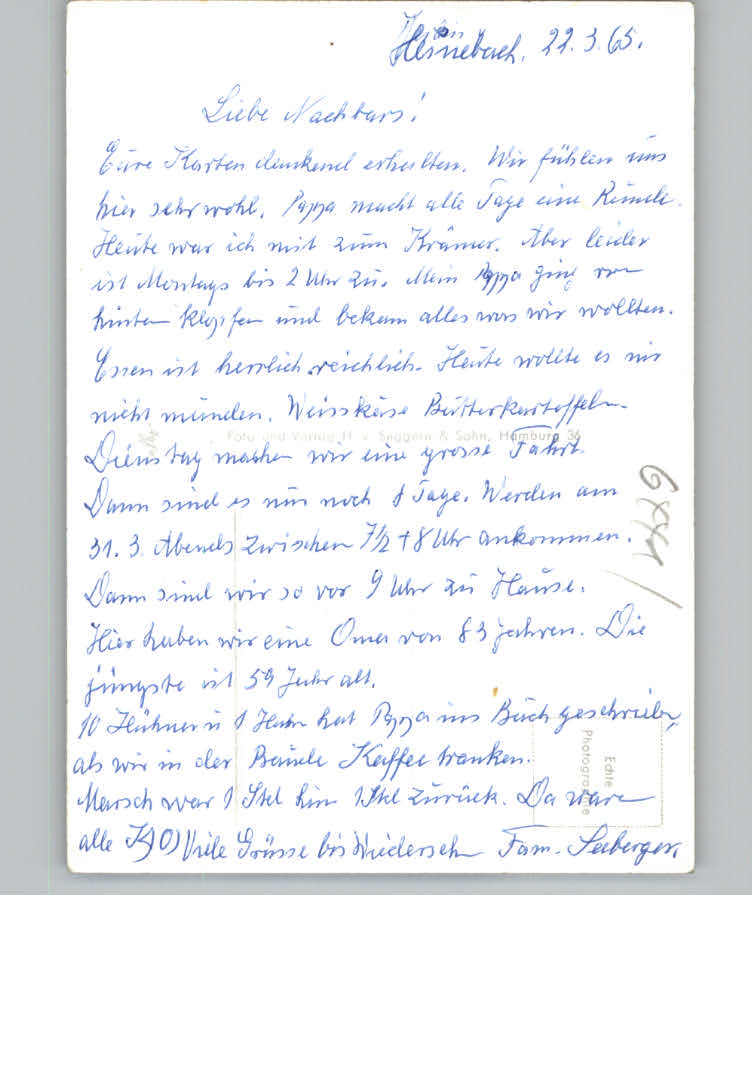 Hönebach, 22.3.65.
Liebe Nachbars!
Eure Karten dankend erhalten. Wir fühlen uns
hier sehr wohl. Pappa macht alle Tage eine Runde.
Heute war ich mit zum Krämer. Aber leider
ist Montags bis 2 Uhr zu. Mein Pappa ging von
hinten klopfen und bekam alles was wir wollten.
Essen ist herrlich reichlich. Heute wollte es mir
nicht munden. Weisskäse Butterkartoffeln
Foto und Verlag H. v. Seggern & Sohn, Hamburg 36
Dienstag machen wir eine grosse Fahrt.
Dann sind es nur noch 8 Tage. Werden am
31. 3. Abends zwischen 7½ + 8 Uhr ankommen.
Dann sind wir so vor 9 Uhr zu Hause.
Hier haben wir eine Oma von 83 Jahren. Die
jüngste ist 59 Jahr alt.
10 Hühner u 1 Hahn hat Pappa ins Buch geschrieben,
als wir in der Baude Kaffee tranken.
Echte
Photographie
Marsch war 1 Std hin 1 Std zurück. Da waren
alle K.O) Viele Grüsse bis Wiedersehn Fam. Seeberger.